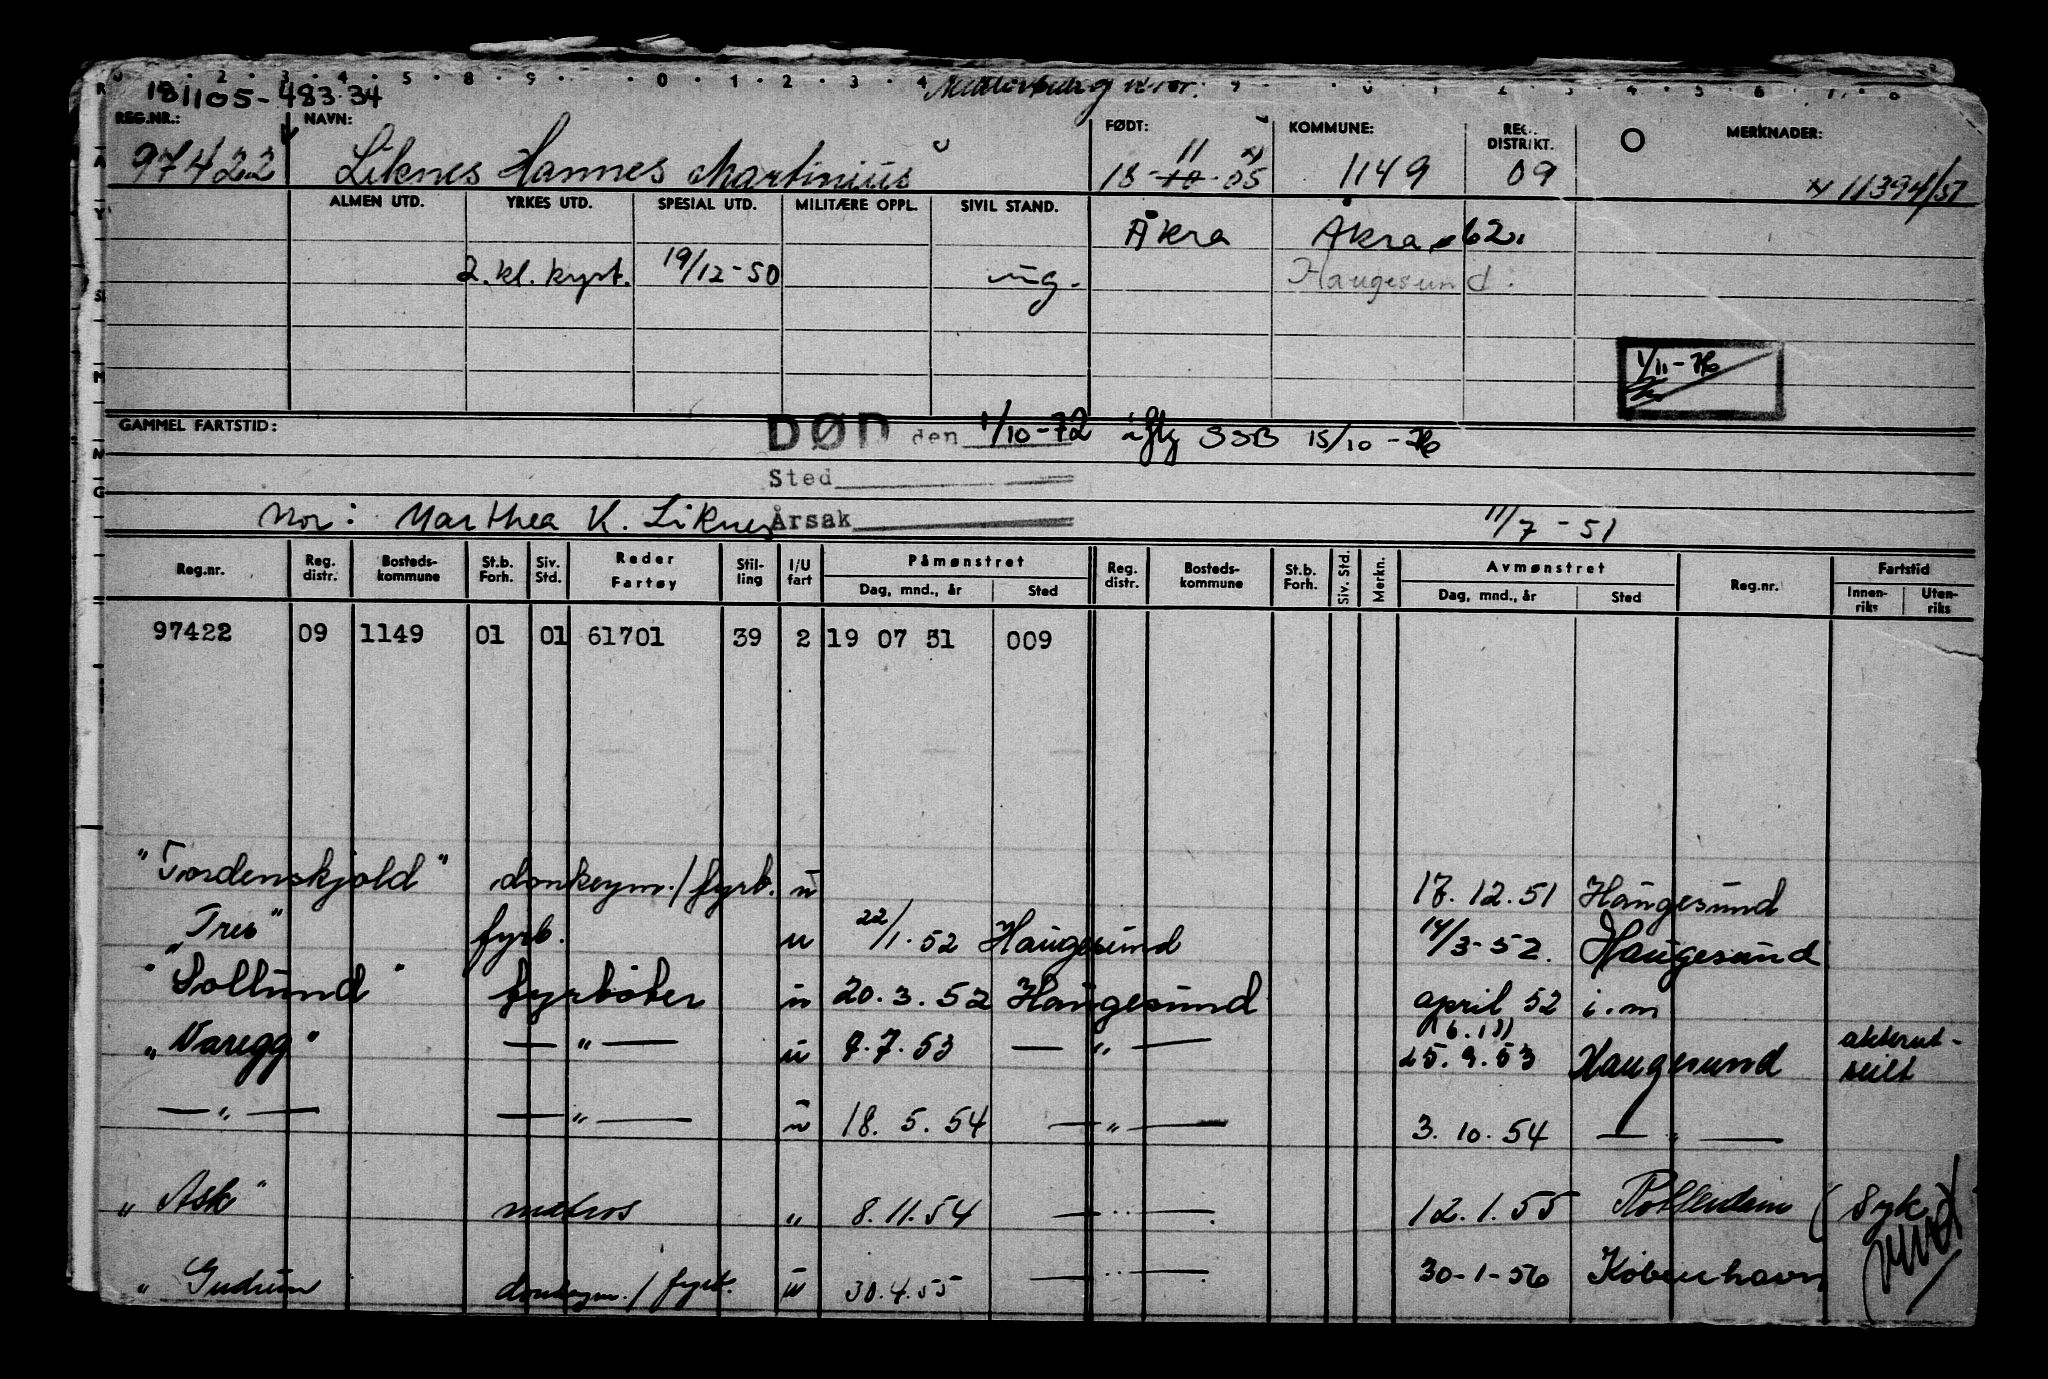 181105-483 34
REG.NR.: NAVN: FØDT: KOMMUNE: REG. DISTRIKT. MERKNADER:
97422 Liknes Hannes Martinius 18-10-05 11 x) 1149 09 x) 11394/51
ALMEN UTD. YRKES UTD. SPESIAL UTD. MILITÆRE OPPL. SIVIL STAND. Åkra Åkra 62.
2. kl. kyst. 19/12-50 ug. Haugesund.
1/11-76
GAMMEL FARTSTID: DØD den 1/10-72 iflg SSB 15/10-76
Sted
Mor: Marthea K. Liknes Årsak 11/7-51
Reg.nr. Reg. distr. Bosteds-kommune St.b. Forh. Siv. Std. Reder Fartøy Stil-ling I/U fart Påmønstret Reg. distr. Bosteds-kommune St.b. Forh. Siv. Std. Merkn. Avmønstret Reg.nr. Fartstid
Dag, mnd., år Sted Dag, mnd., år Sted Innen-riks Uten-riks
97422 09 1149 01 01 61701 39 2 19 07 51 009
"Tordenskjold" donkeym./fyrb. u 17.12.51 Haugesund
"Tres" fyrb. u 22/1.52 Haugesund 14/3-52. Haugesund
"Sollund" fyrbøter u 20.3.52 Haugesund april 52 i.m
"Varegg" — " — u 9.7.53 — " — 25.9.53 Haugesund akterut-seilt
— " — — " — u 18.5.54 — " — 3.10.54 — " —
"Ask" matros " 8.11.54 — " — 12.1.55 Rotterdam (syk
"Gudrun donkeym./fyrb. u 30.4.55 — " — 30-1-56 København